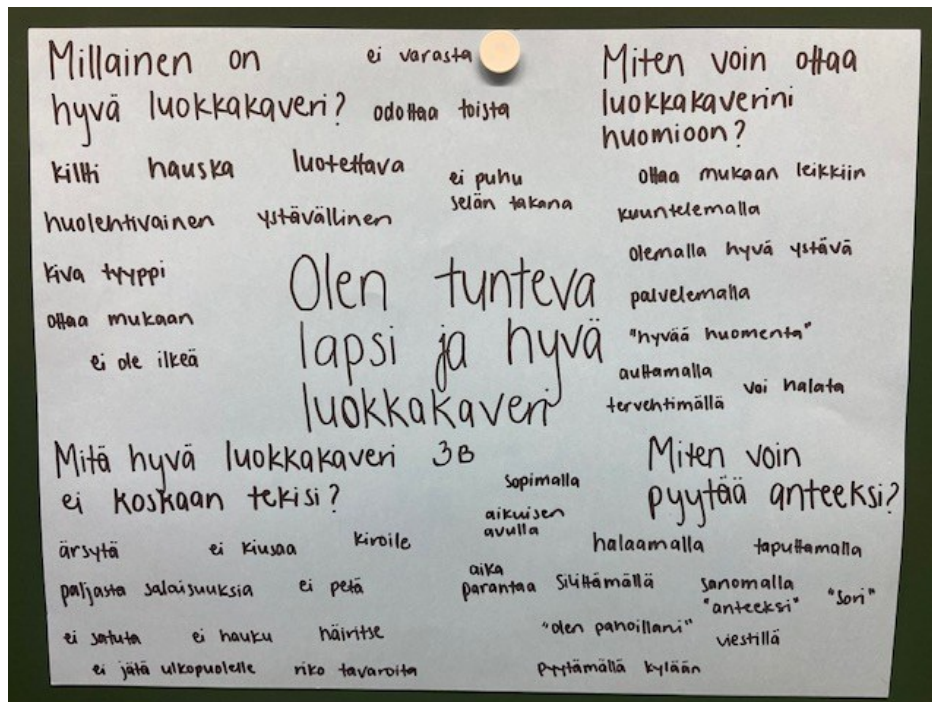 Millainen on
hyvä luokkakaveri?
ei varasta
odottaa toista
kiltti hauska luotettava
ei puhu
selän takana
huolehtivainen ystävällinen
kiva tyyppi
ottaa mukaan
ei ole ilkeä
Miten voin ottaa
luokkakaverini
huomioon?
ottaa mukaan leikkiin
kuuntelemalla
olemalla hyvä ystävä
palvelemalla
"hyvää huomenta"
auttamalla
voi halata
tervehtimällä
Olen tunteva
lapsi ja hyvä
luokkakaveri
3B
Mitä hyvä luokkakaveri
ei koskaan tekisi?
ärsytä ei kiusaa kiroile
paljasta salaisuuksia ei petä
ei satuta ei hauku häiritse
ei jätä ulkopuolelle riko tavaroita
Miten voin
pyytää anteeksi?
Sopimalla
aikuisen
avulla
halaamalla taputtamalla
aika
parantaa
silittämällä
sanomalla
"anteeksi"
"Sori"
"olen pahoillani"
viestillä
pyytämällä kylään